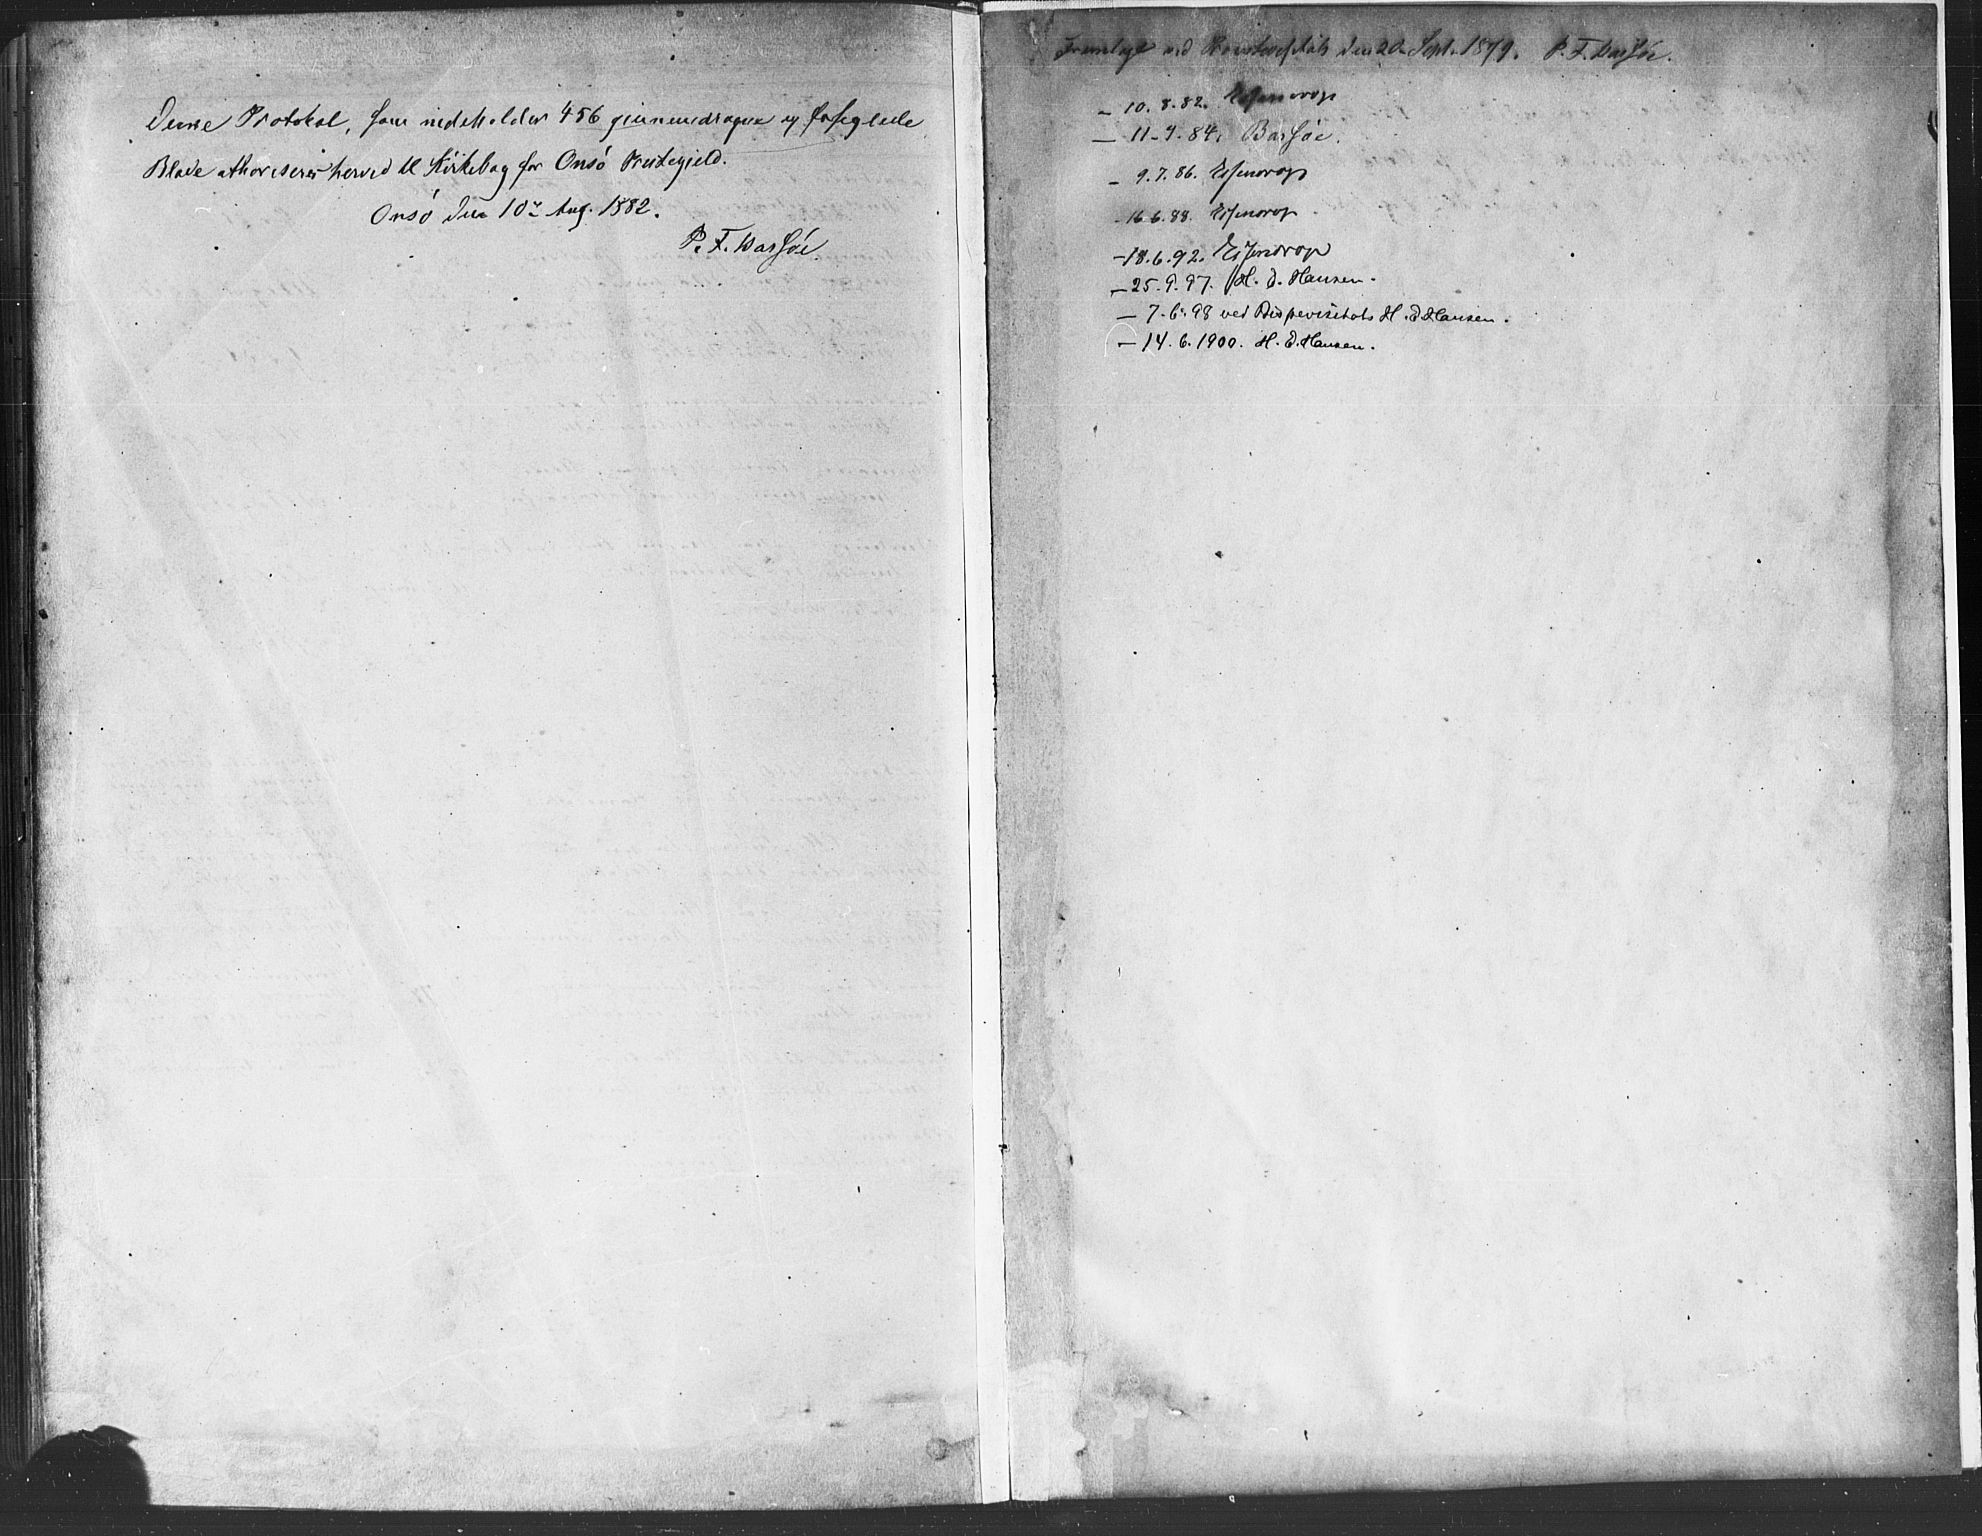 Denne Protokol, som indeholder 456 gjennemdragne og forseglede
Blade athoriseres herved til Kirkebog for Onsö Prestegjeld.
Onsö den 10de Aug. 1882.
P. F. Barsöe
Fremlagt ved den 20. Sept. 1879. P. F. Barsöe.
— 10. 8. 82.
— 11-7. 84, Barsöe.
— 9. 7. 86.
- 16. 6. 88.
- 18. 6. 92.
— 25. 9. 97. H. d. Hansen.
— 7. 6. 98 ved Bispevisitats H. d. Hansen.
— 14. 6. 1900. H. d. Hansen.